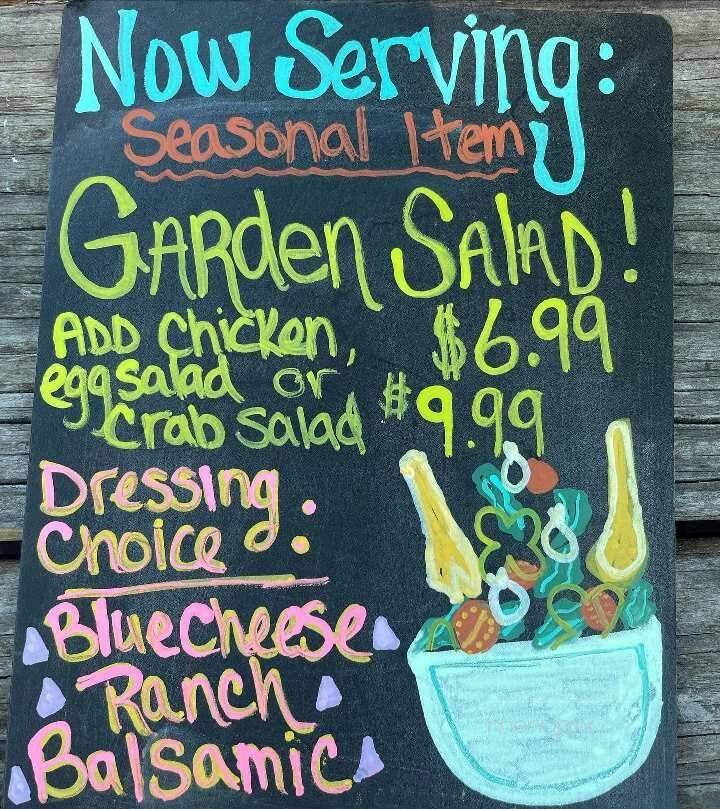 Now Serving:
Seasonal Item
Garden Salad!
$6.99
Add Chicken,
eggsalad or
Crab Salad #9.99
Dressing
Choice :
BlueCheese
Ranch
Balsamic